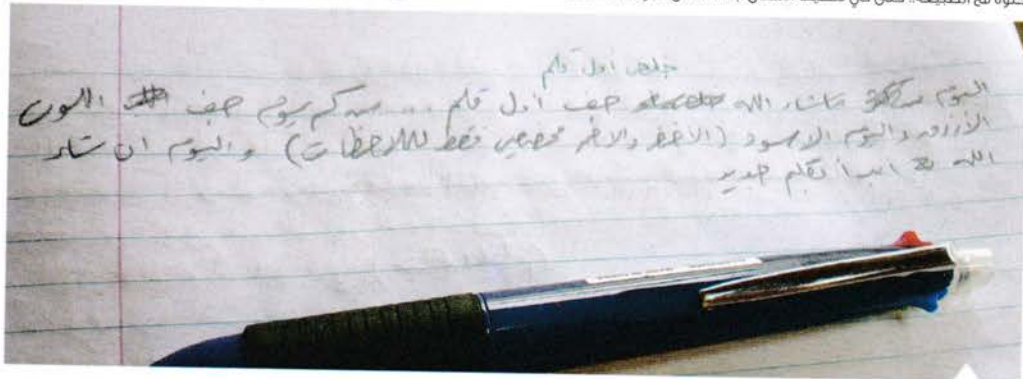 خلص أول قلم
اليوم ما شاء الله جف أول قلم ... من كم يوم جف اللون
الأزرق واليوم الاسود (الأخضر والاحمر مخصص فقط للملاحظات) واليوم ان شاء
الله ابدأ بقلم جديد